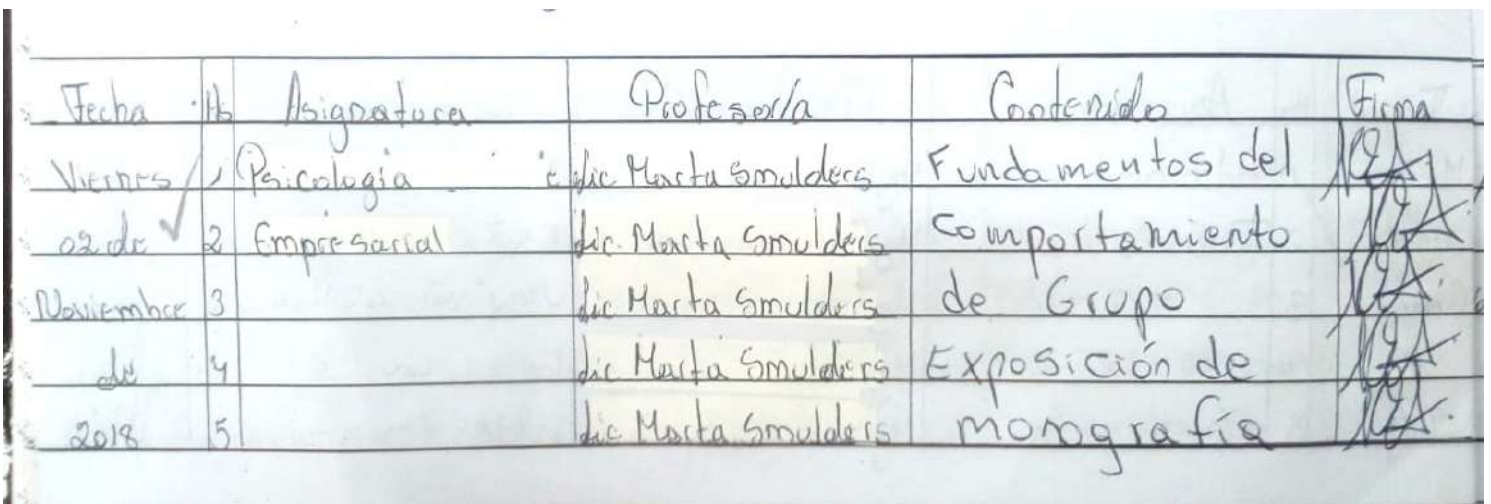 Fecha Hs Asignatura Profesor/a Contenido Firma
Viernes 1 Psicología Lic Marta Smulders Fundamentos del
02 de 2 Empresarial Lic. Marta Smulders Comportamiento
Noviembre 3 Lic Marta Smulders de Grupo
de 4 Lic Marta Smulders Exposición de
2018 5 Lic Marta Smulders monografía